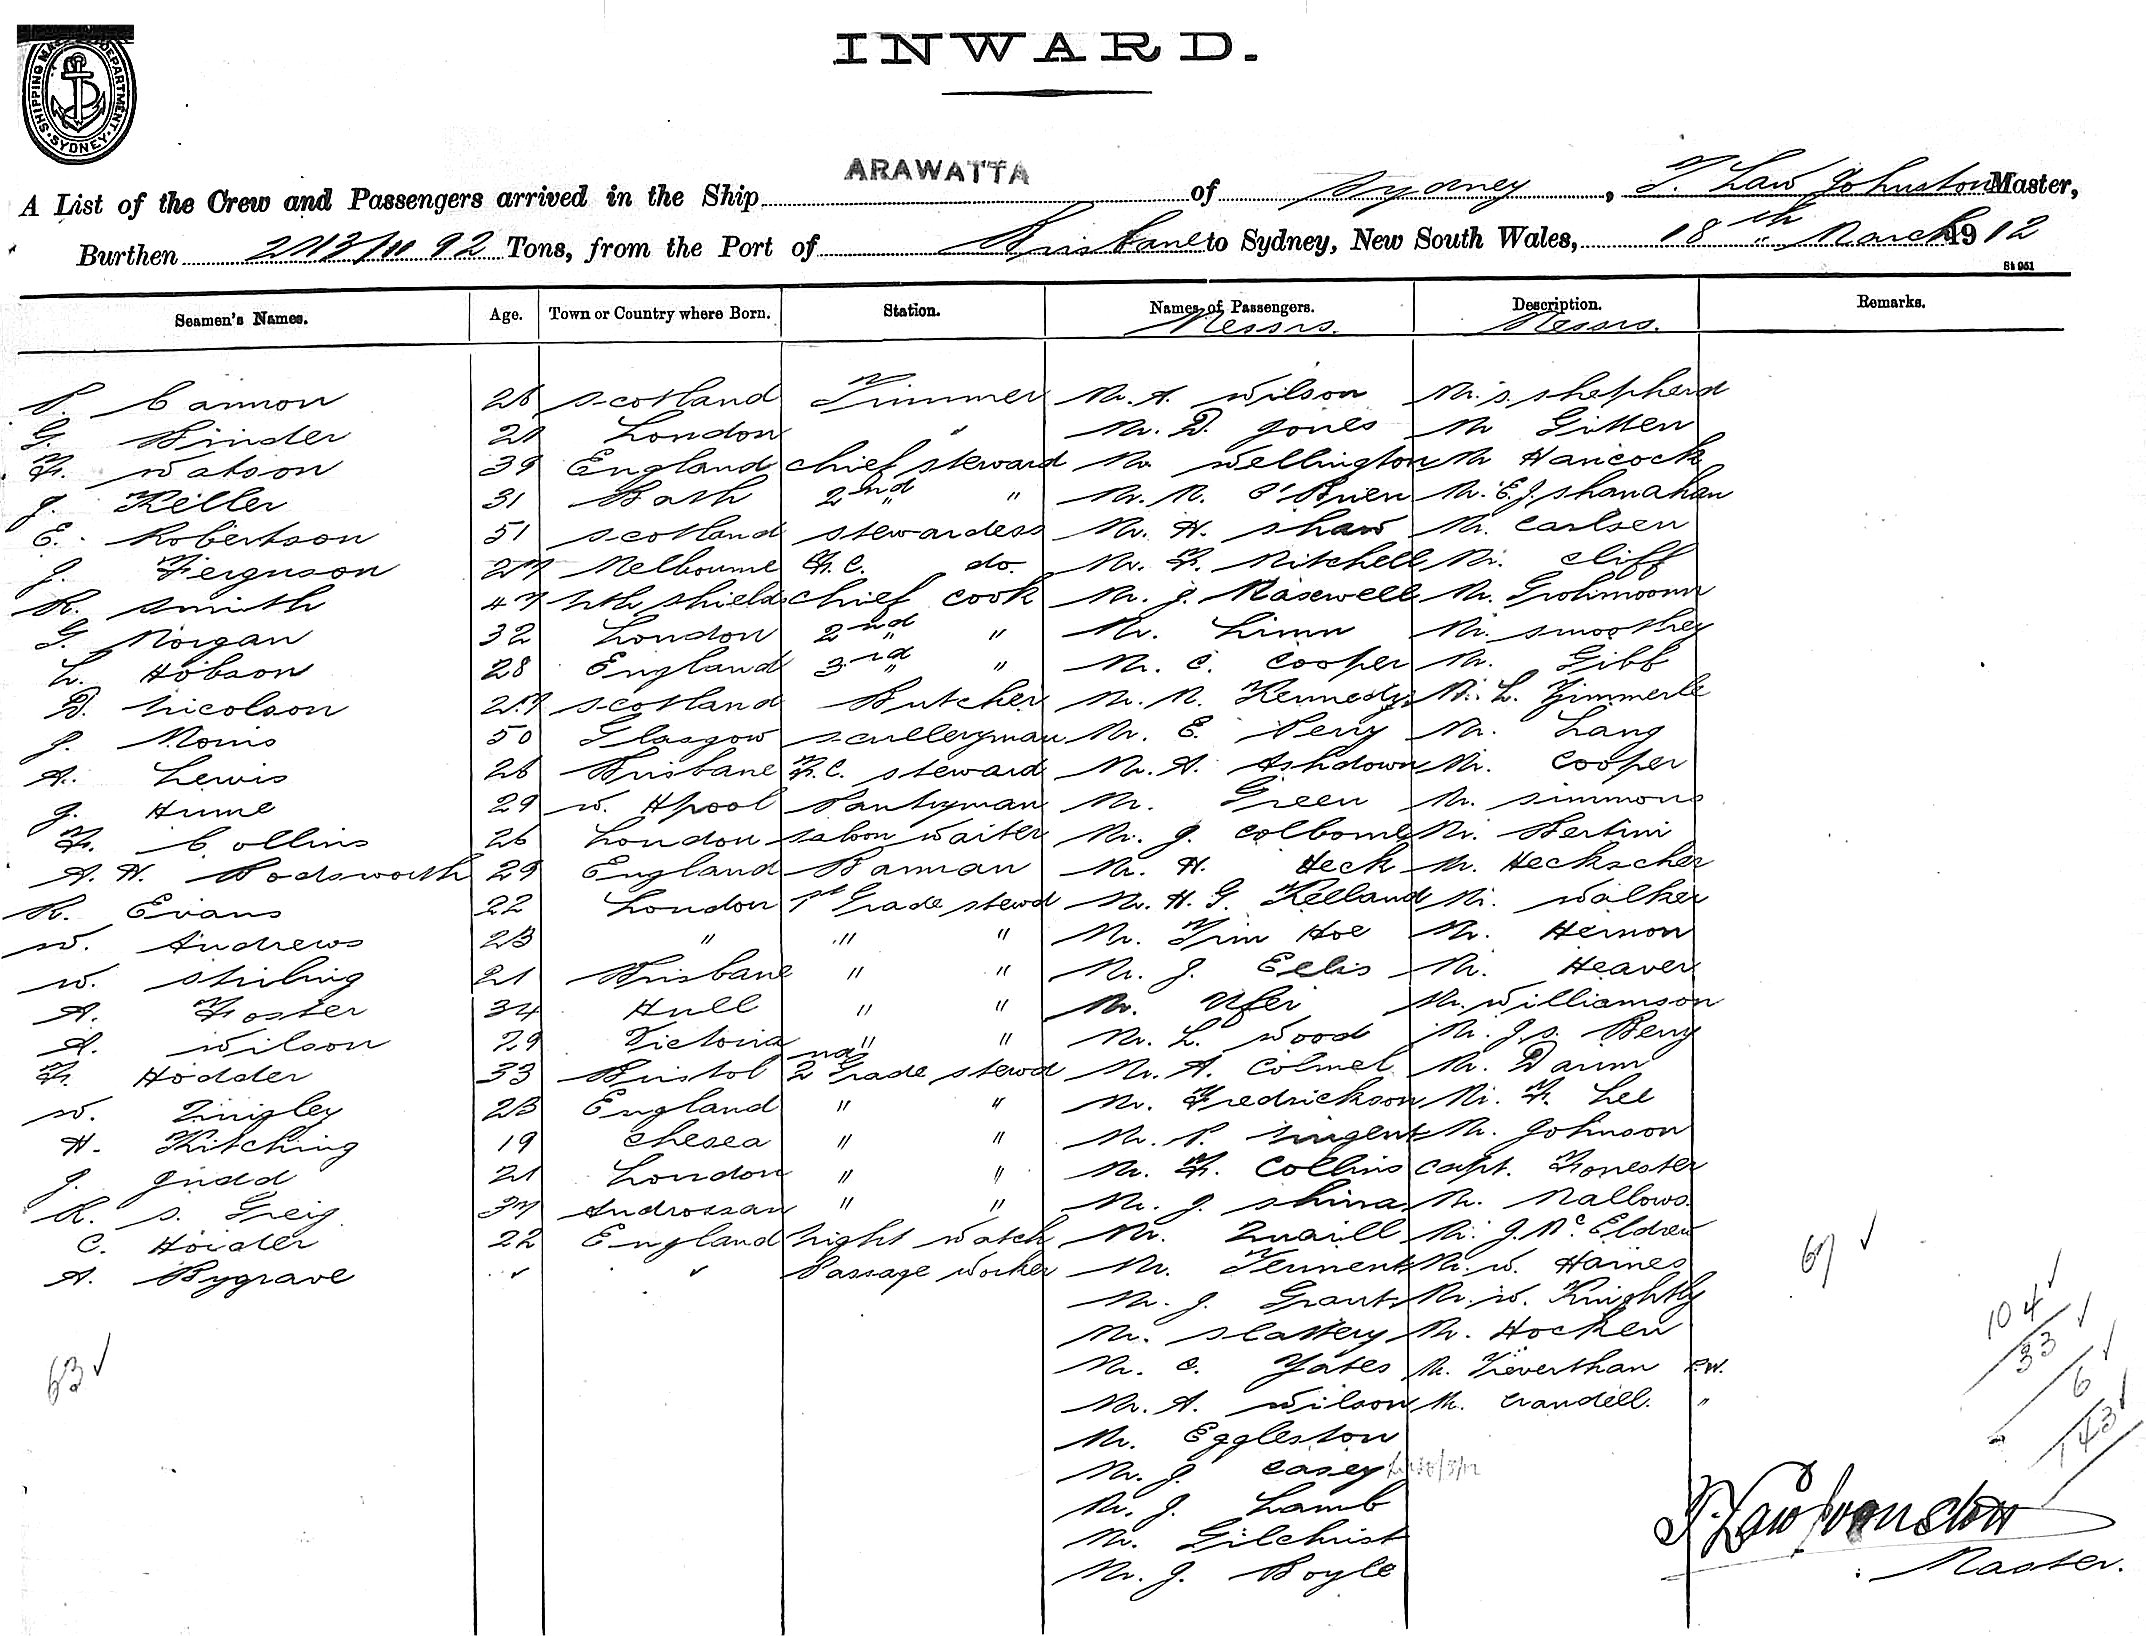 INWARD.
SHIPPING MASTER'S DEPARTMENT SYDNEY
A List of the Crew and Passengers arrived in the Ship ARAWATTA of Sydney, T. Law Johnston Master,
Burthen 2113 92 Tons, from the Port of Brisbane to Sydney, New South Wales, 18th March 1912
St 951
Seamen's Names. Age. Town or Country where Born. Station. Names of Passengers. Description. Remarks.
Messrs. Messrs.
P. Cannon 26 Scotland Trimmer Mr. A. Wilson Mr. S. Shepherd
G. Binder 21 London " Mr. D. Jones Mr Gitten
F. Watson 39 England Chief Steward Mr. Wellington Mr Hancock
J. Keller 31 Bath 2nd " Mr. M. O'Brien Mr. E.J. Shanahan
E. Robertson 51 Scotland Stewardess Mr. H. Shaw Mr. Carlsen
J. Ferguson 27 Melbourne F.C. do. Mr. F. Mitchell Mr. Cliff
R. Smith 47 Nth Shields Chief Cook Mr. J. Masewell Mr.
G. Morgan 32 London 2nd " Mr. Linn Mr. Smoothey
L. Hobson 28 England 3rd " Mr. C. Cooper Mr. Gibb
D. Nicolson 27 Scotland Butcher Mr. M. Kennedy Mr. L. Zimmerle
J. Morris 50 Glasgow Sculleryman Mr. E. Perry Mr. Lang
A. Lewis 26 Brisbane F.C. Steward Mr. A. Ashdown Mr. Cooper
J. Hume 29 W. Hpool Pantryman Mr. Green Mr. Simmons
F. Collins 26 London Saloon Waiter Mr. J. Colborne Mr. Bertini
A. H. Bodsworth 29 England Barman Mr. H. Heck Mr. Heckscher
R. Evans 22 London 1st Grade Stewd Mr. H. G. Kelland Mr. Walker
W. Andrews 23 " " " Mr. Tim Hoe Mr. Hernon
W. Stirling 21 Brisbane " " Mr. J. Ellis Mr. Heaver
A. Foster 34 Hull " " Mr. Ufer Mr. Williamson
A. Wilson 29 Victoria " " Mr. L. Wood Mr. J.S. Berry
F. Hodder 33 Bristol 2nd Grade Stewd Mr. A. Colmel Mr. Daum
W. Tingley 23 England " " Mr. Fredrickson Mr. F. Lee
H. Kitching 19 Chesea " " Mr. P. Nugent Mr. Johnson
J. Judd 21 London " " Mr. F. Collins Capt. Forrester
R. S. Greig 37 Androssan " " Mr. J. Shina Mr. Mallows
C. Hoider 22 England Night Watch Mr. Quaill Mr. J. McEldrew
A. Bygrave Passage Worker Mr. Tennent Mr. W. Haines
Mr. J. Grant Mr. W. Knightly
Mr. Slattery Mr. Hocken
Mr. C. Yates Mr. Treverthan P.W.
Mr. A. Wilson Mr. Crandell. "
Mr. Eggleston
Mr. J. Casey
Mr. J. Lamb
Mr. Gilchrist
Mr. J. Boyle
63
67
104
33
6
143
T. Law Johnston
Master.